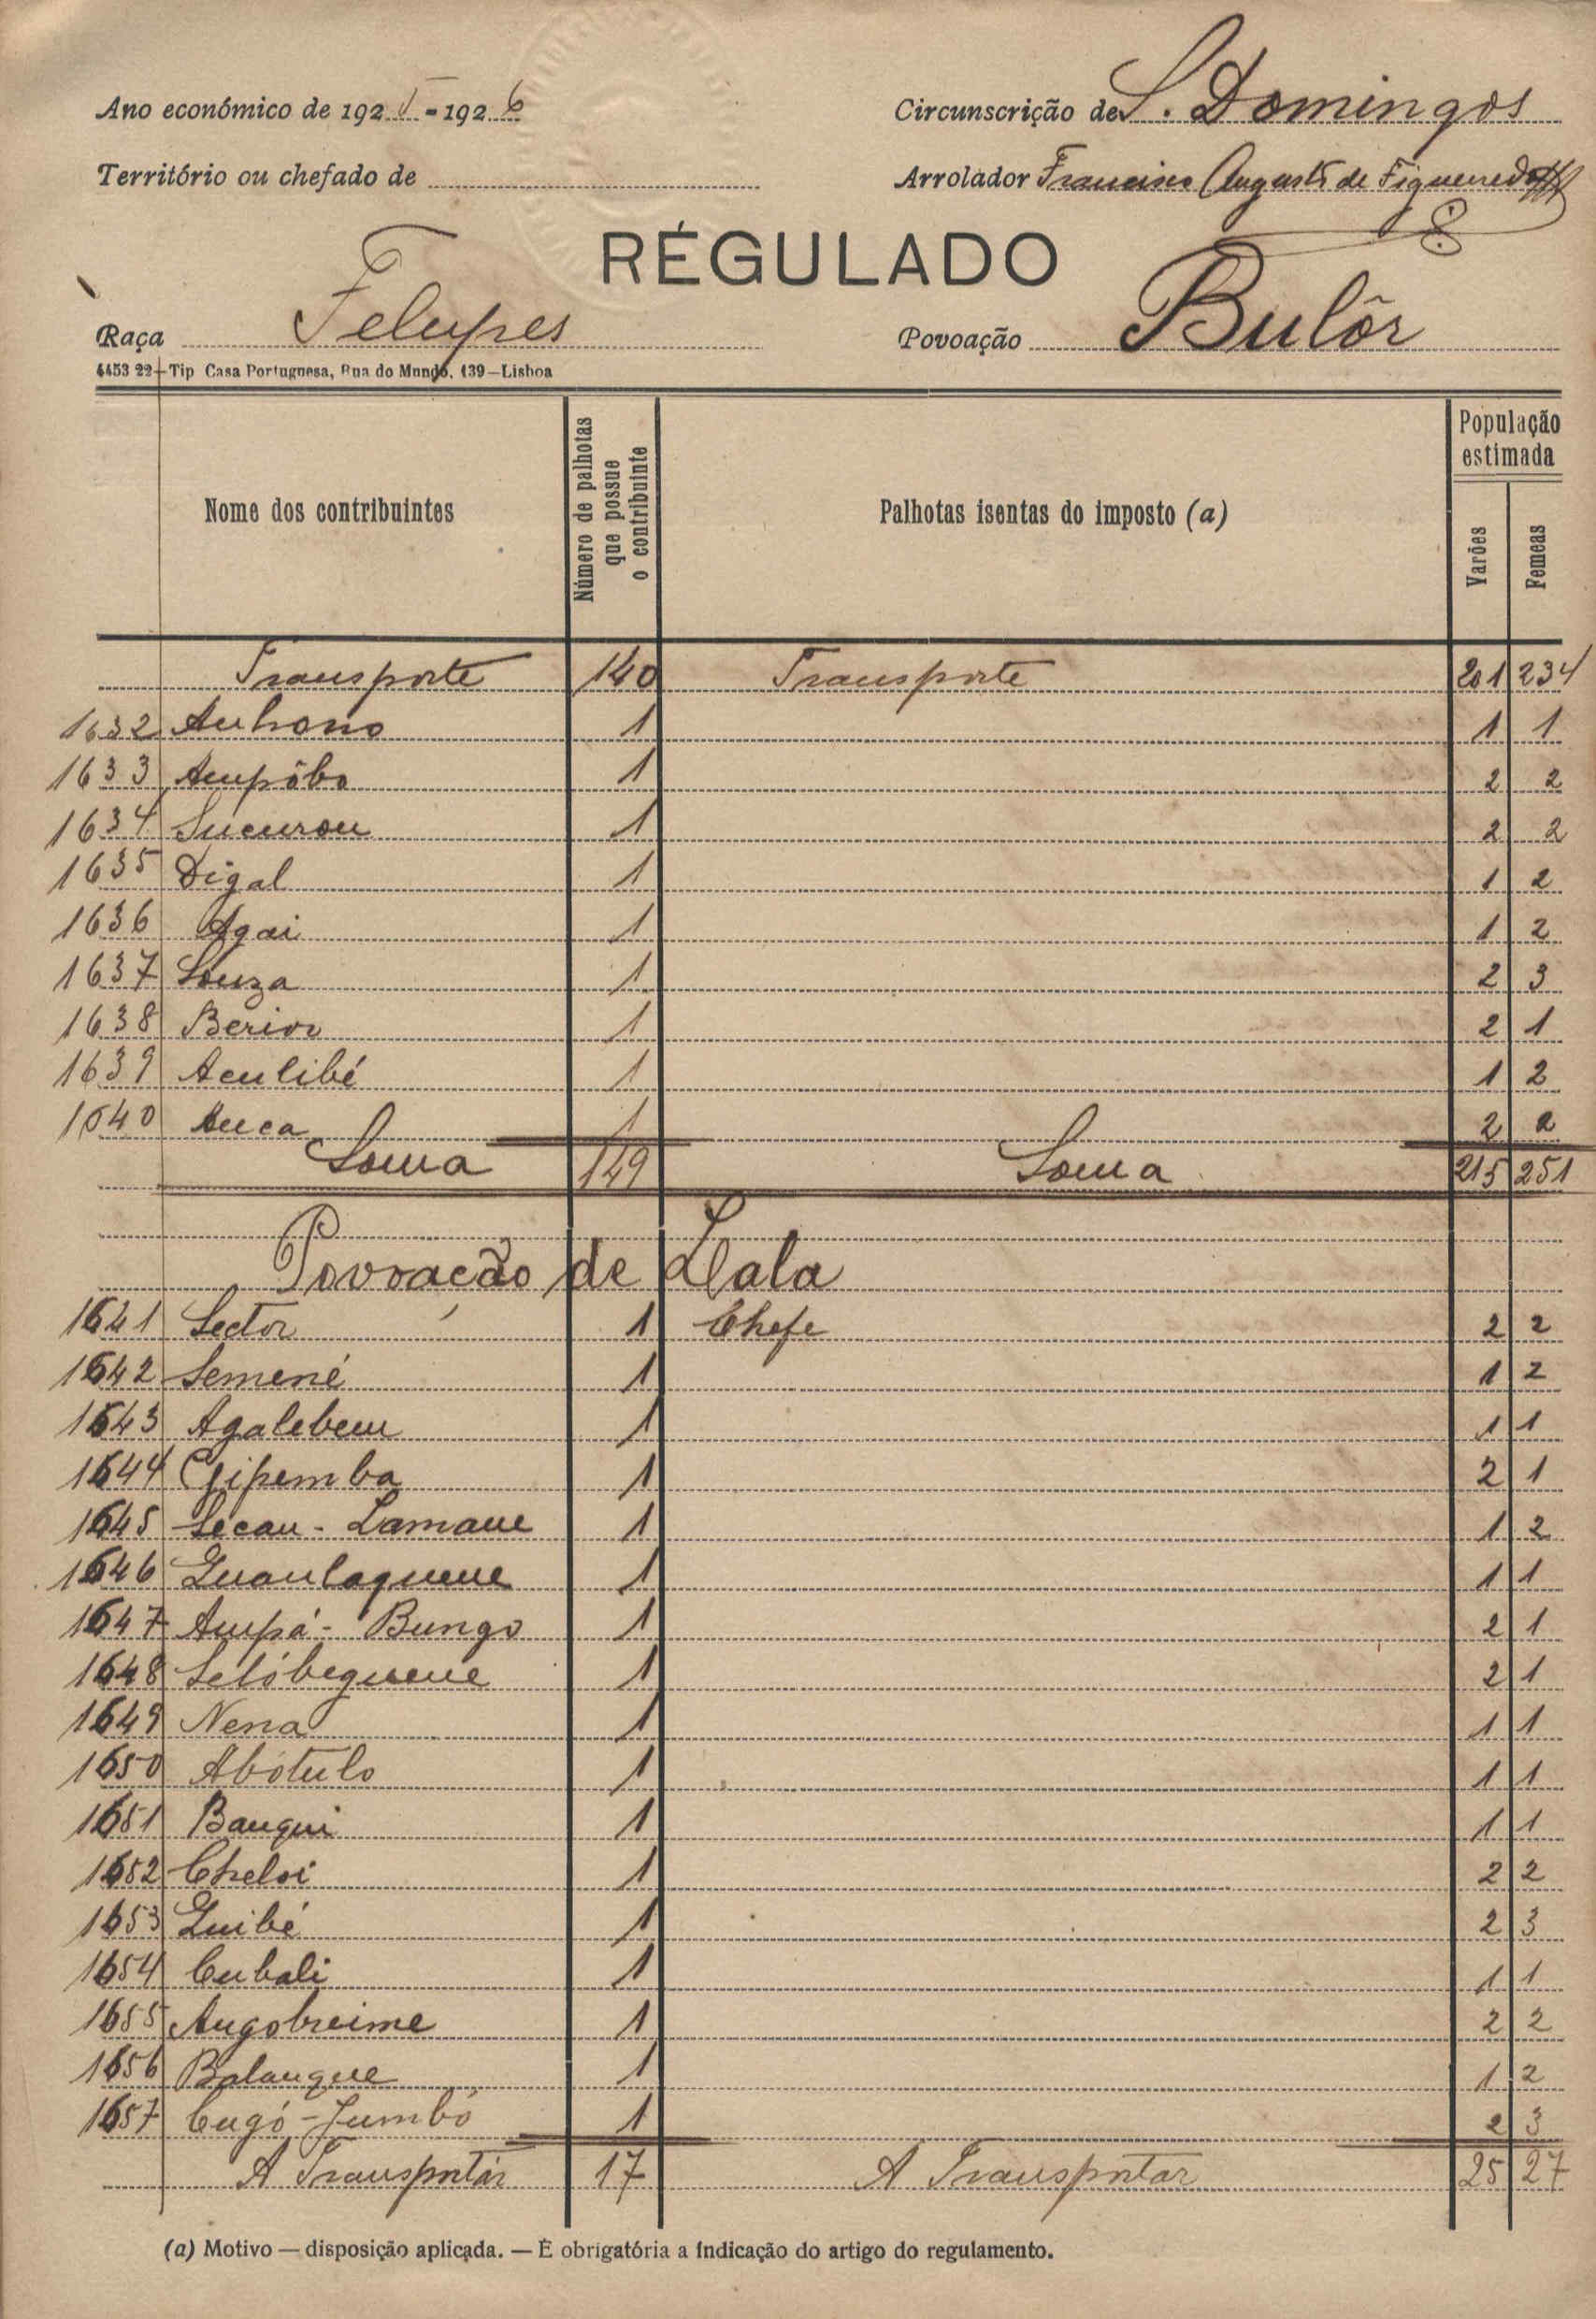 Ano económico de 1925-1926
Circunscrição de S. Domingos
Território ou chefado de
Arrolador Francisco Augusto de Figueiredo
RÉGULADO
Raça Felupes
Povoação Bulôr
4453 22-Tip Casa Portuguesa, Rua do Mundo, 139—Lisboa
Nome dos contribuintes
Número de palhotas que possue o contribuinte
Palhotas isentas do imposto (a)
População estimada
Varões
Femeas
Transporte 140 Transporte 201 234
1632 Auhono 1 1 1
1633 Aupôbo 1 2 2
1634 Sucurou 1 2 2
1635 Digal 1 1 2
1636 Agai 1 1 2
1637 Souza 1 2 3
1638 Berior 1 2 1
1639 Aculibé 1 1 2
1640 Auca 1 2 2
Soma 149 Soma 215 251
Povoação de Lala
1641 Sector 1 Chefe 2 2
1642 Semené 1 1 2
1643 Agalebeu 1 1 1
1644 Gipemba 1 2 1
1645 Secau - Lamaue 1 1 2
1646 Guaulaqueue 1 1 1
1647 Aupá - Bungo 1 2 1
1648 Selóbequeue 1 2 1
1649 Nena 1 1 1
1650 Abótulo 1 1 1
1651 Bauqui 1 1 1
1652 Cheloi 1 2 2
1653 Guibé 1 2 3
1654 Cubali 1 1 1
1655 Augobreime 1 2 2
1656 Balauque 1 1 2
1657 Cugó - Jumbó 1 2 3
A Transportar 17 A Transportar 25 27
(a) Motivo — disposição aplicada. — É obrigatória a indicação do artigo do regulamento.